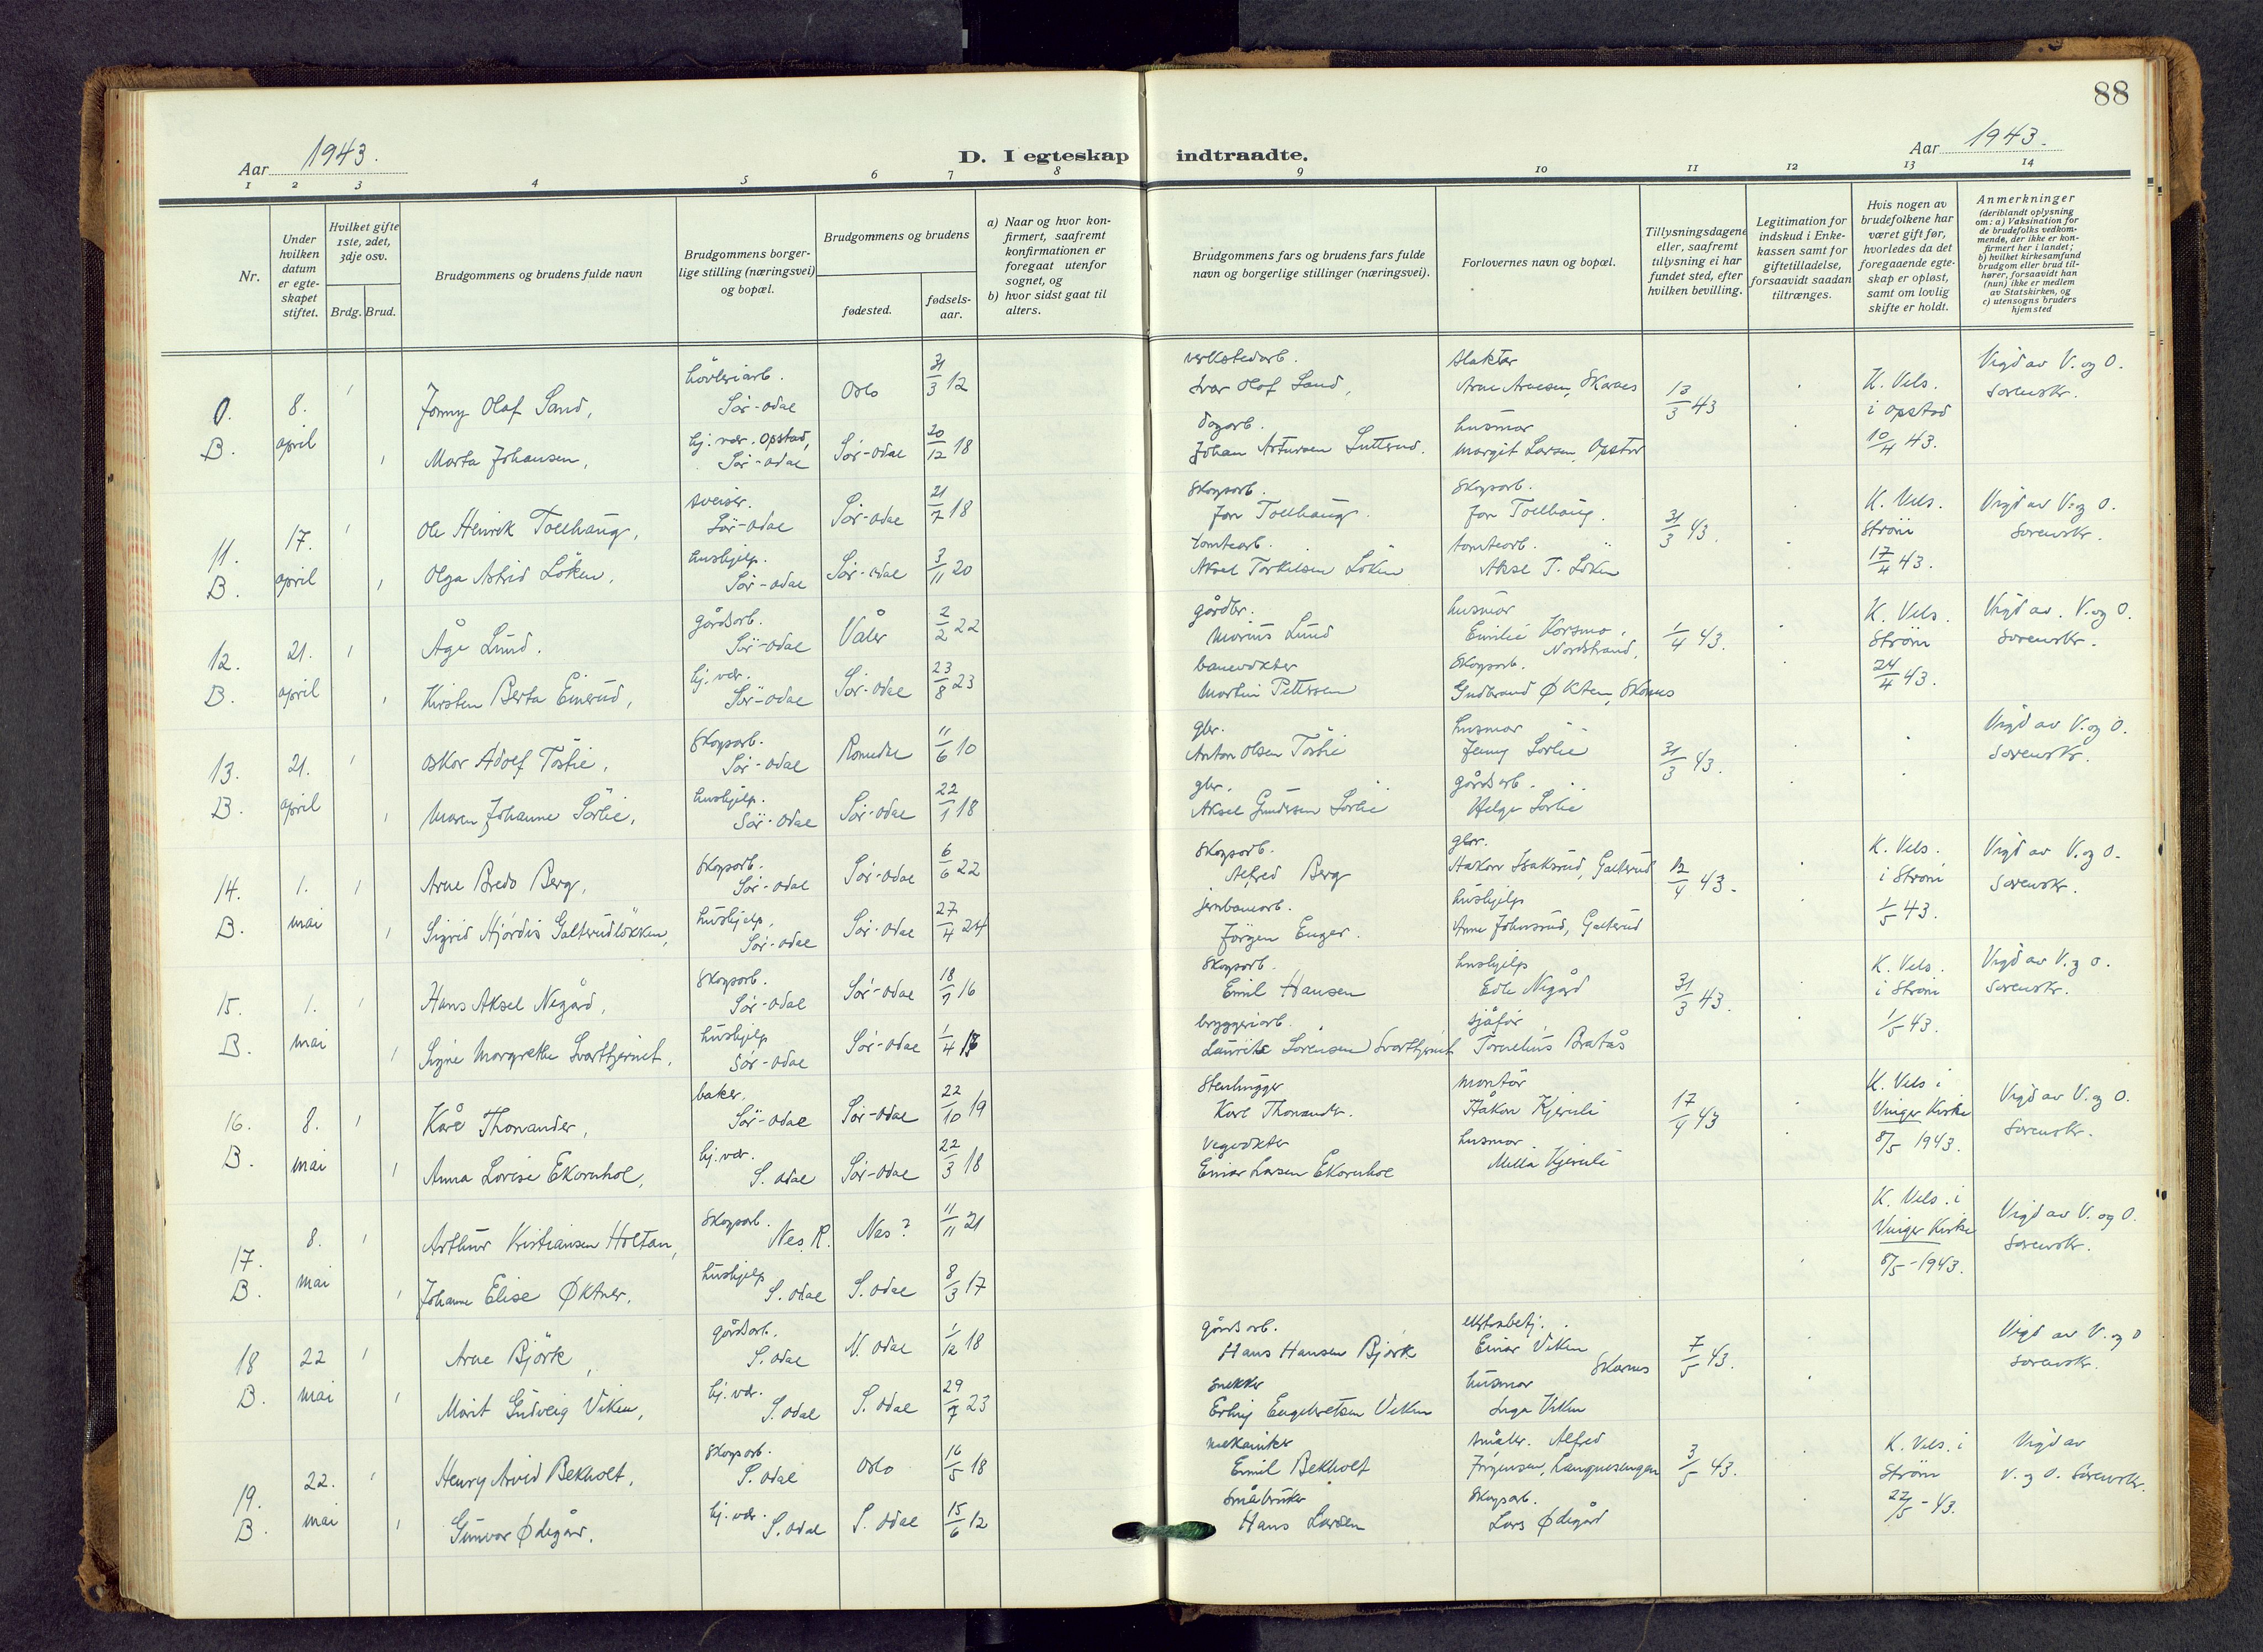 88
Aar 1943.
D. I egteskap indtraadte.
Aar 1943.
1 2 3 4 5 6 7 8 9 10 11 12 13 14
Nr.
Under hvilken datum er egteskapet stiftet.
Hvilket gifte 1ste, 2det, 3dje osv.
Brdg. Brud.
Brudgommens og brudens fulde navn
Brudgommens borgerlige stilling (næringsvei) og bopæl.
Brudgommens og brudens
fødested.
fødselsaar.
a) Naar og hvor konfirmert, saafremt konfirmationen er foregaat utenfor sognet, og
b) hvor sidst gaat til alters.
Brudgommens fars og brudens fars fulde navn og borgerlige stillinger (næringsvei).
Forlovernes navn og bopæl.
Tillysningsdagene eller, saafremt tillysning ei har fundet sted, efter hvilken bevilling.
Legitimation for indskud i Enkekassen samt for giftetilladelse, forsaavidt saadan tiltrænges.
Hvis nogen av brudefolkene har været gift før, hvorledes da det foregaaende egteskap er opløst, samt om lovlig skifte er holdt.
Anmerkninger (deriblandt oplysning om: a) Vaksination for de brudefolks vedkommende, der ikke er konfirmert her i landet; b) hvilket kirkesamfund brudgom eller brud tilhører, forsaavidt han (hun) ikke er medlem av Statskirken, og c) utensogns bruders hjemsted
0. 8. 1 Jonny Olof Sand, høvleriarb. Sør-Odal Oslo 31/3 12 verkstedarb. Ivar Olof Sand, Slakter Arne Arnesen, Skarnes 13/3 43 K. Vels. i Opstad Vigd av V. og O. Sorenskr.
B. april 1 Marta Johansen, hj. vær. Opstad, Sør-Odal Sør-Odal 20/12 18 dagarb. Johan Artursen Lutterud. husmor Margit Larsen, Opstad 10/4 43.
11. 17. 1 Ole Henrik Tollhaug, sveiser. Sør-Odal Sør-Odal 21/7 18 Skogsarb. Jon Tollhaug. Skogsarb. Jon Tollhaug. 31/3 43. K. Vels. Strøm Vigd av V. og O. Sorenskr.
B. april 1 Olga Astrid Løken, hushjelp. Sør-Odal Sør-Odal 3/11 20 tomtearb. Aksel Torkilsen Løken tomtearb. Aksel T. Løken 17/4 43.
12. 21. 1 Åge Lund. gårdsarb. Sør-Odal Våler 2/2 22 gårdbr. Marius Lund husmor Emilie Korsmo, Nordstrand, 1/4 43. K. Vels. Strøm Vigd av. V. og O. Sorenskr.
B. april 1 Kirsten Berta Einerud, hj. vær. Sør-Odal Sør-Odal 23/8 23 banevokter Martin Pettersen Skogsarb. Gudbrand Økten, Skarnes 24/4 43.
13. 21. 1 Oskar Adolf Tøslie, Skogsarb. Sør-Odal Romedal 11/6 10 gbr. Anton Olsen Tøslie husmor Jenny Sørlie 31/3 43. Vigd av V. og O. Sorenskr.
B. april 1 Maren Johanne Sørlie, hushjelp. Sør-Odal Sør-Odal 22/1 18 gbr. Aksel Gundersen Sørlie gårdsarb. Helge Sørlie
14. 1. 1 Arne Bredo Berg, Skogsarb. Sør-Odal Sør-Odal 6/6 22 Skogsarb. Alfred Berg gbr. Haakon Isaksrud, Galterud 12/4 43. K. Vels. i Strøm Vigd av V. og O. Sorenskr.
B. mai 1 Sigrid Hjørdis Galterudløkken, hushjelp, Sør-Odal Sør-Odal 27/4 24 jernbanearb. Jørgen Enger. hushjelp Anne Johnsrud, Galterud 1/5 43.
15. 1. 1 Hans Aksel Nygård, Skogsarb. Sør-Odal Sør-Odal 18/7 16 Skogsarb. Emil Hansen hushjelp Edle Nygård 31/3 43. K. Vels. i Strøm Vigd av V. og O. Sorenskr.
B. mai 1 Signe Margrethe Svarttjernet, hushjelp Sør-Odal Sør-Odal 1/4 bryggeriarb. Laurits Sørensen Svarttjernet sjåfør Tornelius Bratås 1/5 43.
16. 8. 1 Kåre Thorander, baker. Sør-Odal Sør-Odal 22/10 19 Stenhugger Karl Thorander. montør Håkon Kjernli 17/4 43 K. Vels i Vinger Kirke Vigd av V. og O. Sorenskr.
B. mai 1 Anna Lovise Ekornhol, hj. vær. S. Odal Sør-Odal 22/3 18 Vegvokter Einar Larsen Ekornhol husmor Milla Kjernli 8/5 1943.
17. 8. 1 Arthur Kristiansen Holtan, Skogsarb. Nes. R. Nes? 11/11 21 K. Vels. i Vinger Kirke Vigd av V. og O. Sorenskr.
B. mai 1 Johanne Elise Øktner, hushjelp S. Odal S. Odal 8/3 17 8/5-1943.
18 22 1 Arne Bjørk, gårdsarb. S. Odal N. Odal 1/12 18 gårdsarb. Hans Hansen Bjørk ekstrabetj. Einar Viken Skarnes 7/5 43. Vigd av V. og O Sorenskr.
B. mai 1 Marit Gudveig Viken, hj. vær. S. Odal S. Odal 29/7 23 snekker Erling Engebretsen Viken husmor Inga Viken
19. 22. 1 Henry Arvid Bekholt, Skogsarb. S. Odal Oslo 16/5 18 mekaniker Emil Bekholt småbr. Alfred Jørgensen, Langnesengen 3/5 43. K. Vels. i Strøm Vigd av V. og O. Sorenskr.
B. mai 1 Gunvor Ødegård, hj. vær. S. Odal S. Odal 15/6 12 Småbruker Hans Larsen Skogsarb. Lars Ødegård 22/5-43.